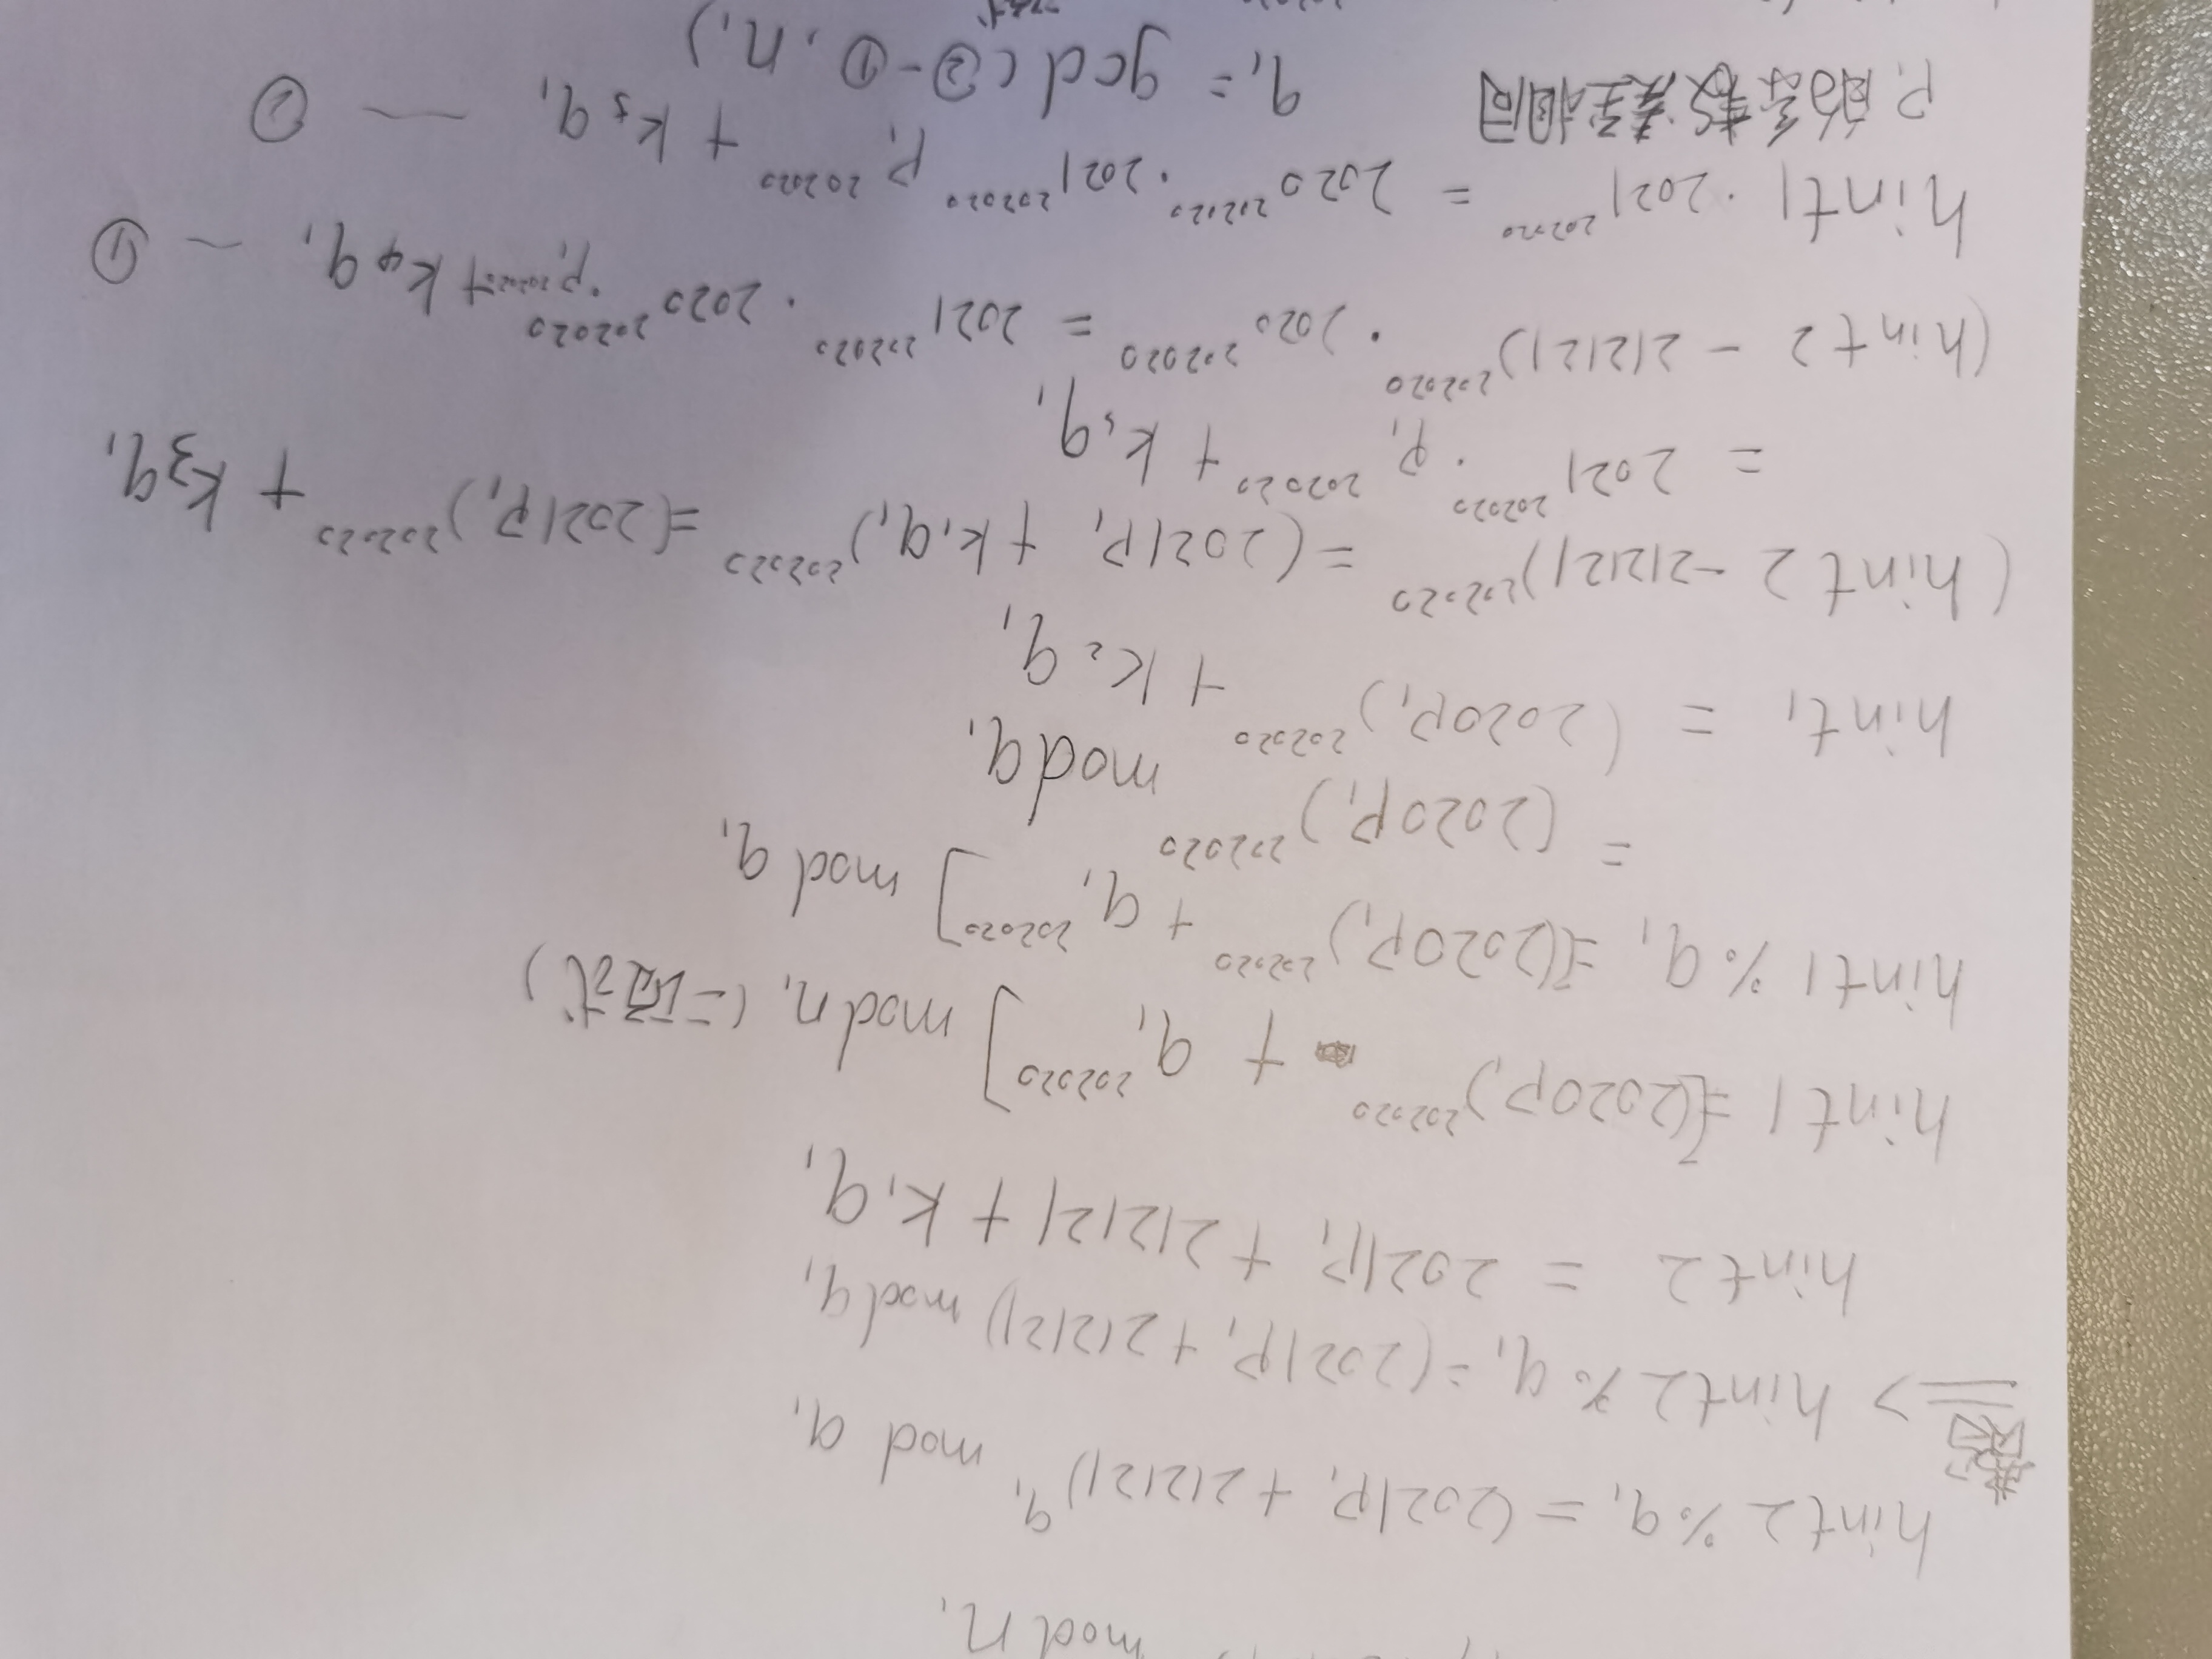 mod n₁
hint2 % q₁ = (2021p₁ + 212121)^q₁ mod q₁
费
=> hint2 % q₁ = (2021p₁ + 212121) mod q₁
hint2 = 2021p₁ + 212121 + k₁q₁
hint1 = [(2020p₁)^202020 + q₁^202020] mod n₁ (二项式)
hint1 % q₁ = [(2020p₁)^202020 + q₁^202020] mod q₁
= (2020p₁)^202020 mod q₁
hint₁ = (2020p₁)^202020 + k₂q₁
(hint2 - 212121)^202020 = (2021p₁ + k₁q₁)^202020 = (2021p₁)^202020 + k₃q₁
= 2021^202020 · p₁^202020 + k₃q₁
(hint2 - 212121)^202020 · 2020^202020 = 2021^202020 · 2020^202020 · p₁^202020 + k₄q₁ — ①
hint1 · 2021^202020 = 2020^202020 · 2021^202020 p₁^202020 + k₅q₁ — ②
p₁的系数凑至相同 q₁ = gcd(②-①, n₁)